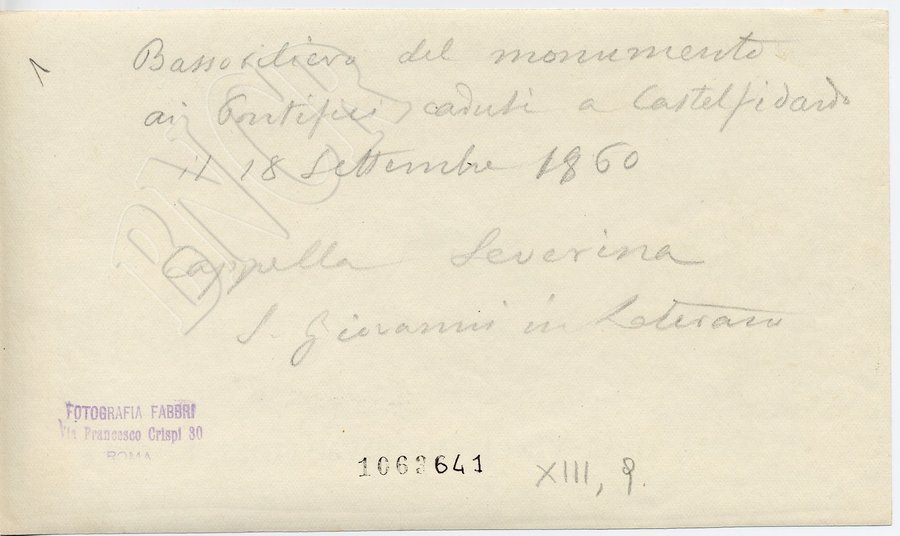 1
Bassorilievo del monumento
ai Pontifici caduti a Castelfidardo
il 18 Settembre 1860
Cappella Severina
S. Giovanni in Laterano
BNCR
FOTOGRAFIA FABBRI
Via Francesco Crispi 30
ROMA
1063641
XIII, 9.